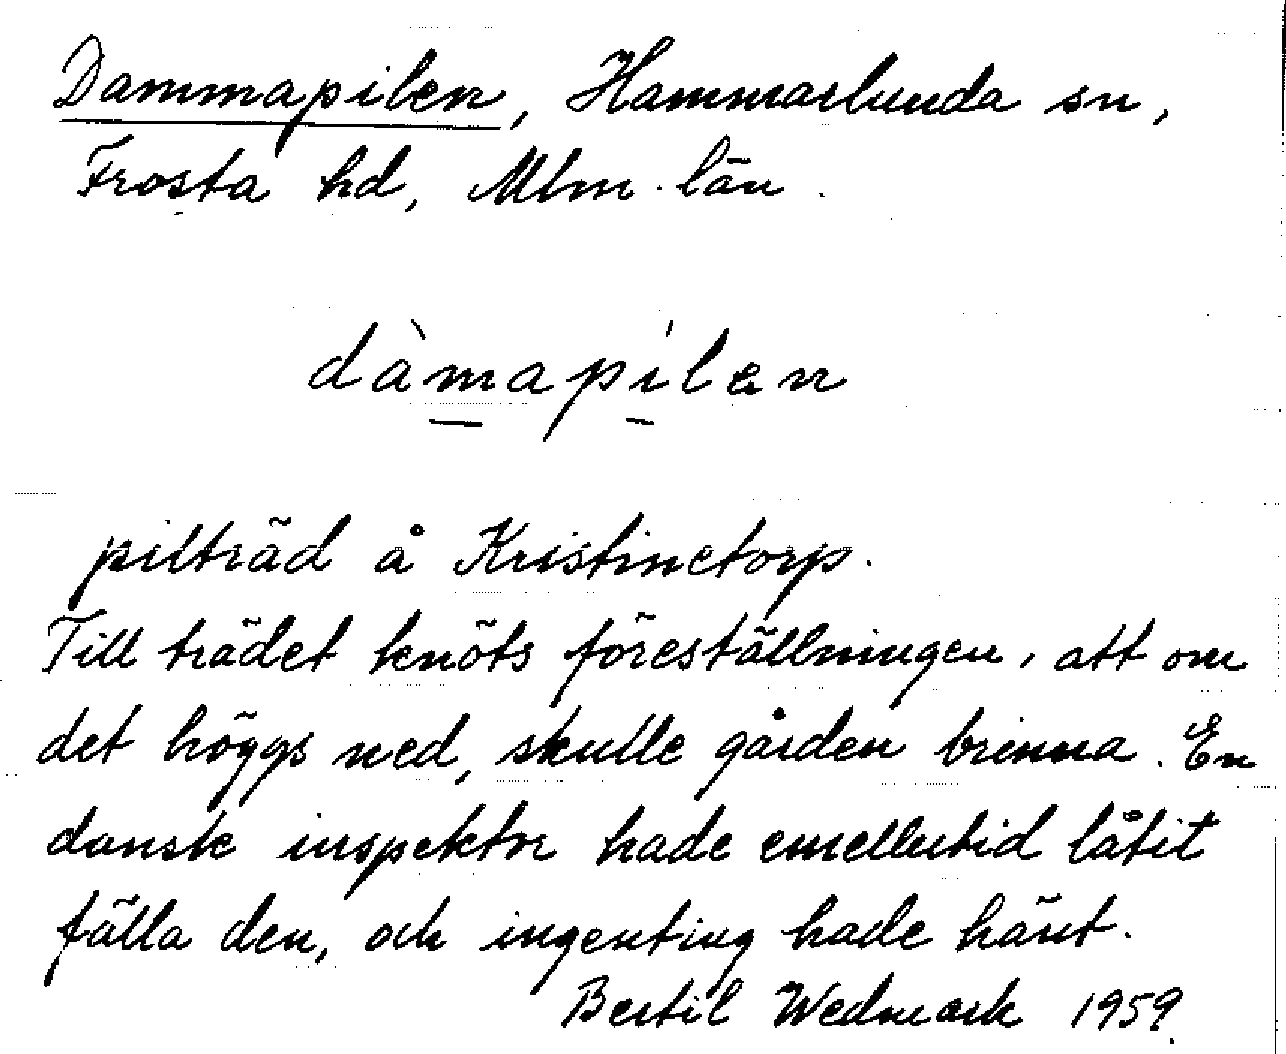 Dammapilen, Hammarlunda sn,
Frosta hd, Mlm. län.
dàmapílen
pilträd å Kristinetorp.
Till trädet knöts föreställningen, att om
det höggs ned, skulle gården brinna. En
dansk inspektor hade emellertid låtit
fälla den, och ingenting hade hänt.
Bertil Wedmark 1959.